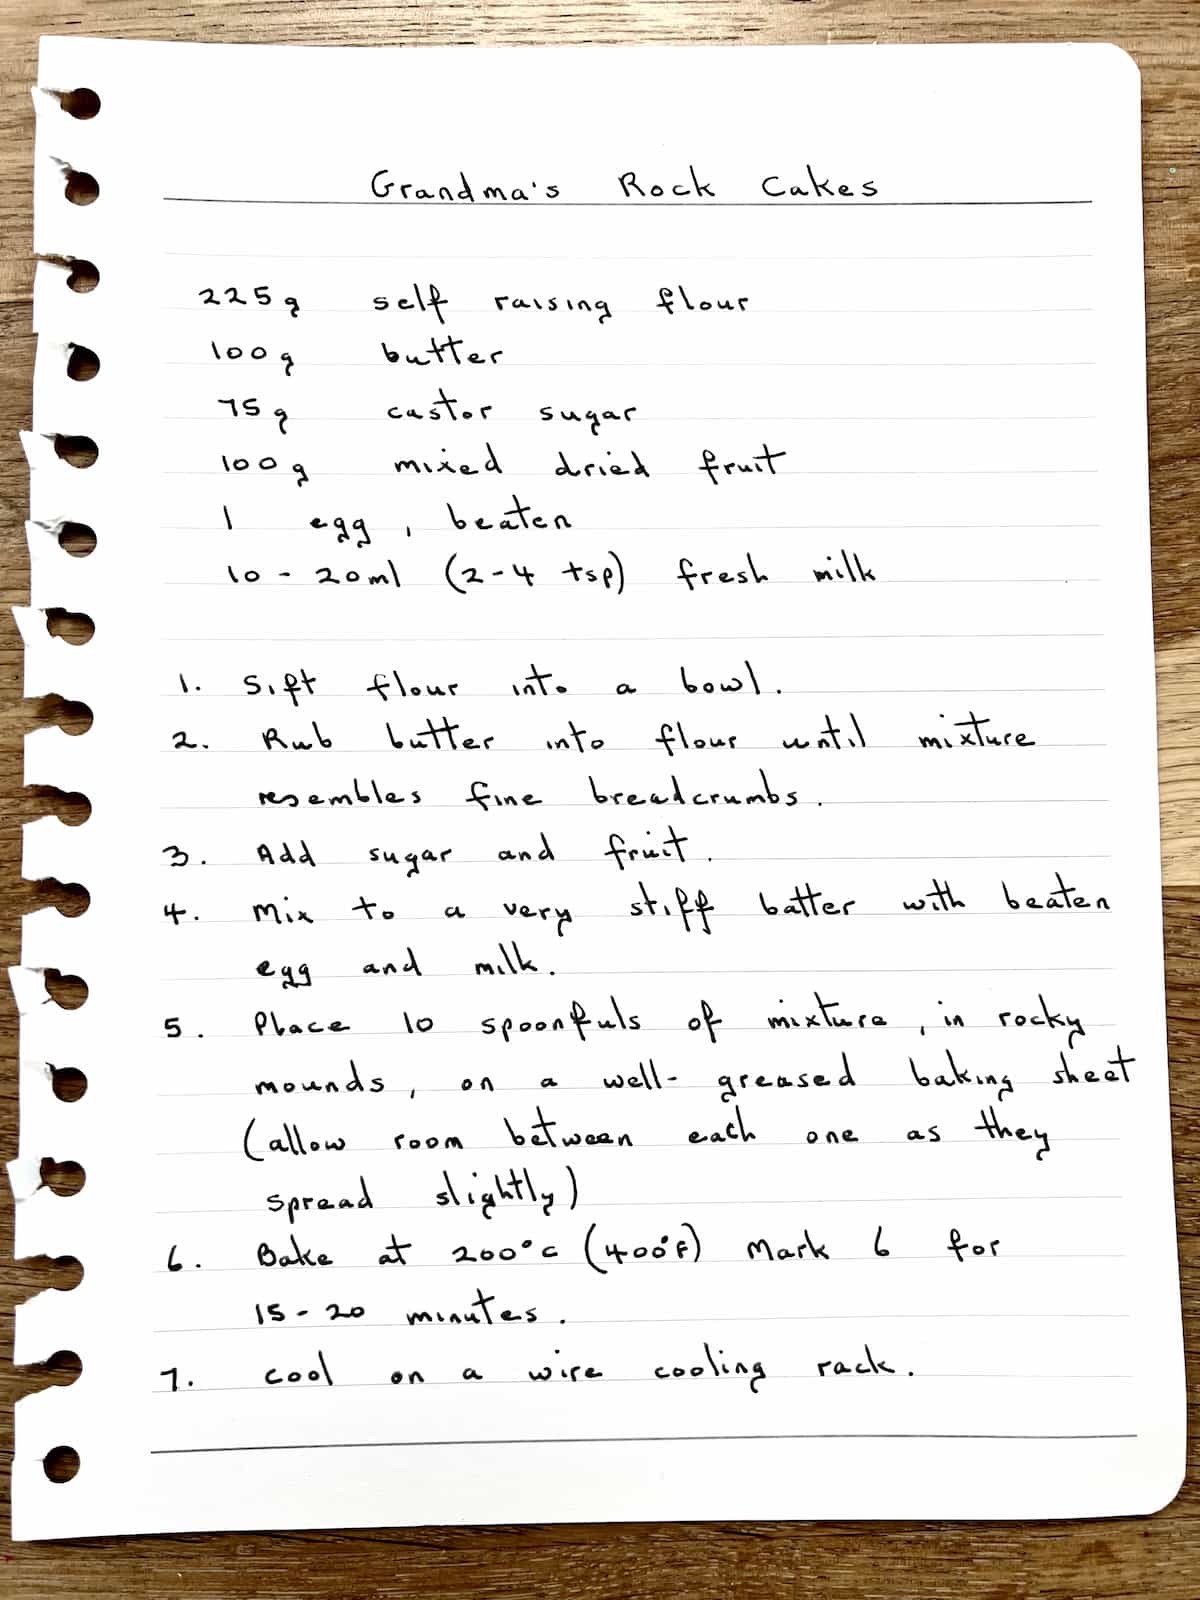 Grandma's Rock Cakes
225g self raising flour
100g butter
75g castor sugar
100g mixed dried fruit
1 egg, beaten
10 - 20ml (2-4 tsp) fresh milk
1. Sift flour into a bowl.
2. Rub butter into flour until mixture
resembles fine breadcrumbs.
3. Add sugar and fruit.
4. Mix to a very stiff batter with beaten
egg and milk.
5. Place 10 spoonfuls of mixture, in rocky
mounds, on a well-greased baking sheet
(allow room between each one as they
spread slightly)
6. Bake at 200°c (400°F) Mark 6 for
15-20 minutes.
7. Cool on a wire cooling rack.